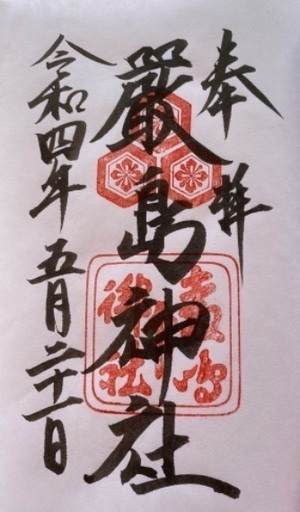 奉拝
嚴島神社
嚴島神社
令和四年五月二十一日